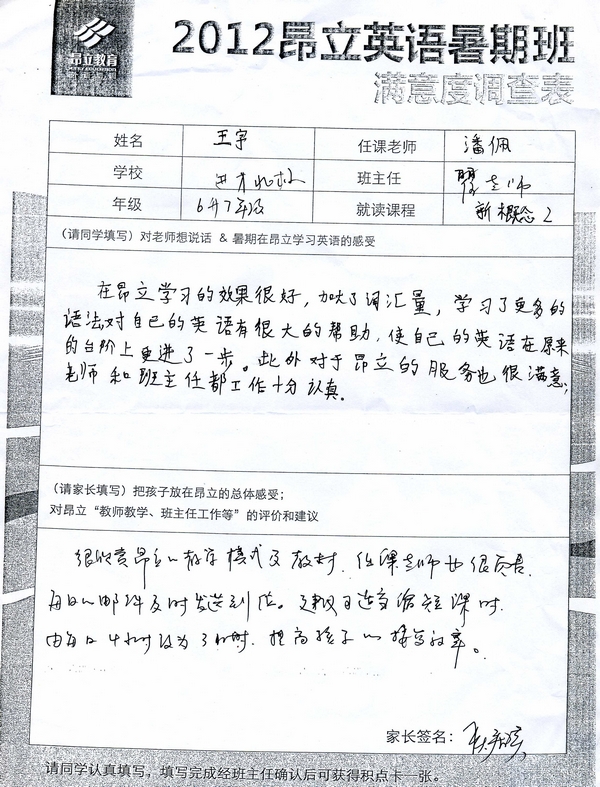 昂立教育
2012昂立英语暑期班
满意度调查表
姓名 王宇 任课老师 潘佩
学校 进才北校 班主任 瞿老师
年级 6升7年级 就读课程 新概念2
(请同学填写) 对老师想说话 & 暑期在昂立学习英语的感受
在昂立学习的效果很好,加大了词汇量,学习了更多的
语法对自己的英语有很大的帮助,使自己的英语在原来
的台阶上更进了一步。此外对于昂立的服务也很满意,
老师和班主任都工作十分认真。
(请家长填写) 把孩子放在昂立的总体感受;
对昂立“教师教学、班主任工作等”的评价和建议
很欣赏昂立的教学模式及教材,任课老师也很负责,
每日的邮件及时发送到位。建议可适当缩短课时,
由每日4小时改为3小时,提高孩子的接受效率。
家长签名:
请同学认真填写,填写完成经班主任确认后可获得积点卡一张。